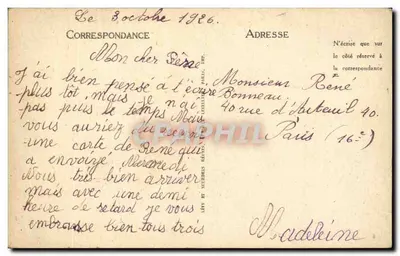 Le 3 octobre 1926.
CORRESPONDANCE
ADRESSE
N'écrire que sur
le côté réservé à
la correspondance
Mon cher Réné
J'ai bien pensé à t'écrire
plus tôt, mais je n'ai
pas puis le temps Mais
vous auriez
une carte de René qui
a envoyé
Nous très bien arriver
mais avec une demi
heure de retard je vous
embrasse bien tous trois
Monsieur René
Bonneau
40 rue d'Auteuil 40.
Paris (16e)
Madeleine